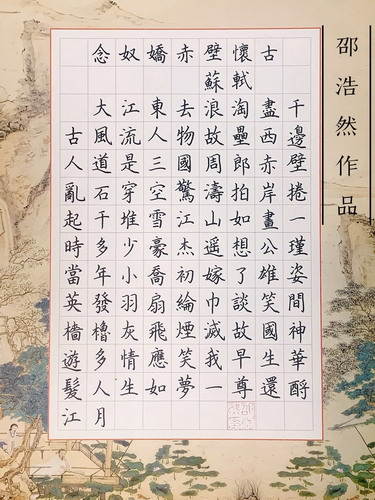 念奴嬌赤壁懷古
蘇軾
大江東去浪淘盡千
古風流人物故壘西邊
人道是三國周郎赤壁
亂石穿空驚濤拍岸捲
起千堆雪江山如畫一
時多少豪杰遥想公瑾
當年小喬初嫁了雄姿
英發羽扇綸巾談笑間
檣櫓灰飛煙滅故國神
遊多情應笑我早生華
髮人生如夢一尊還酹
江月
邵浩然作品